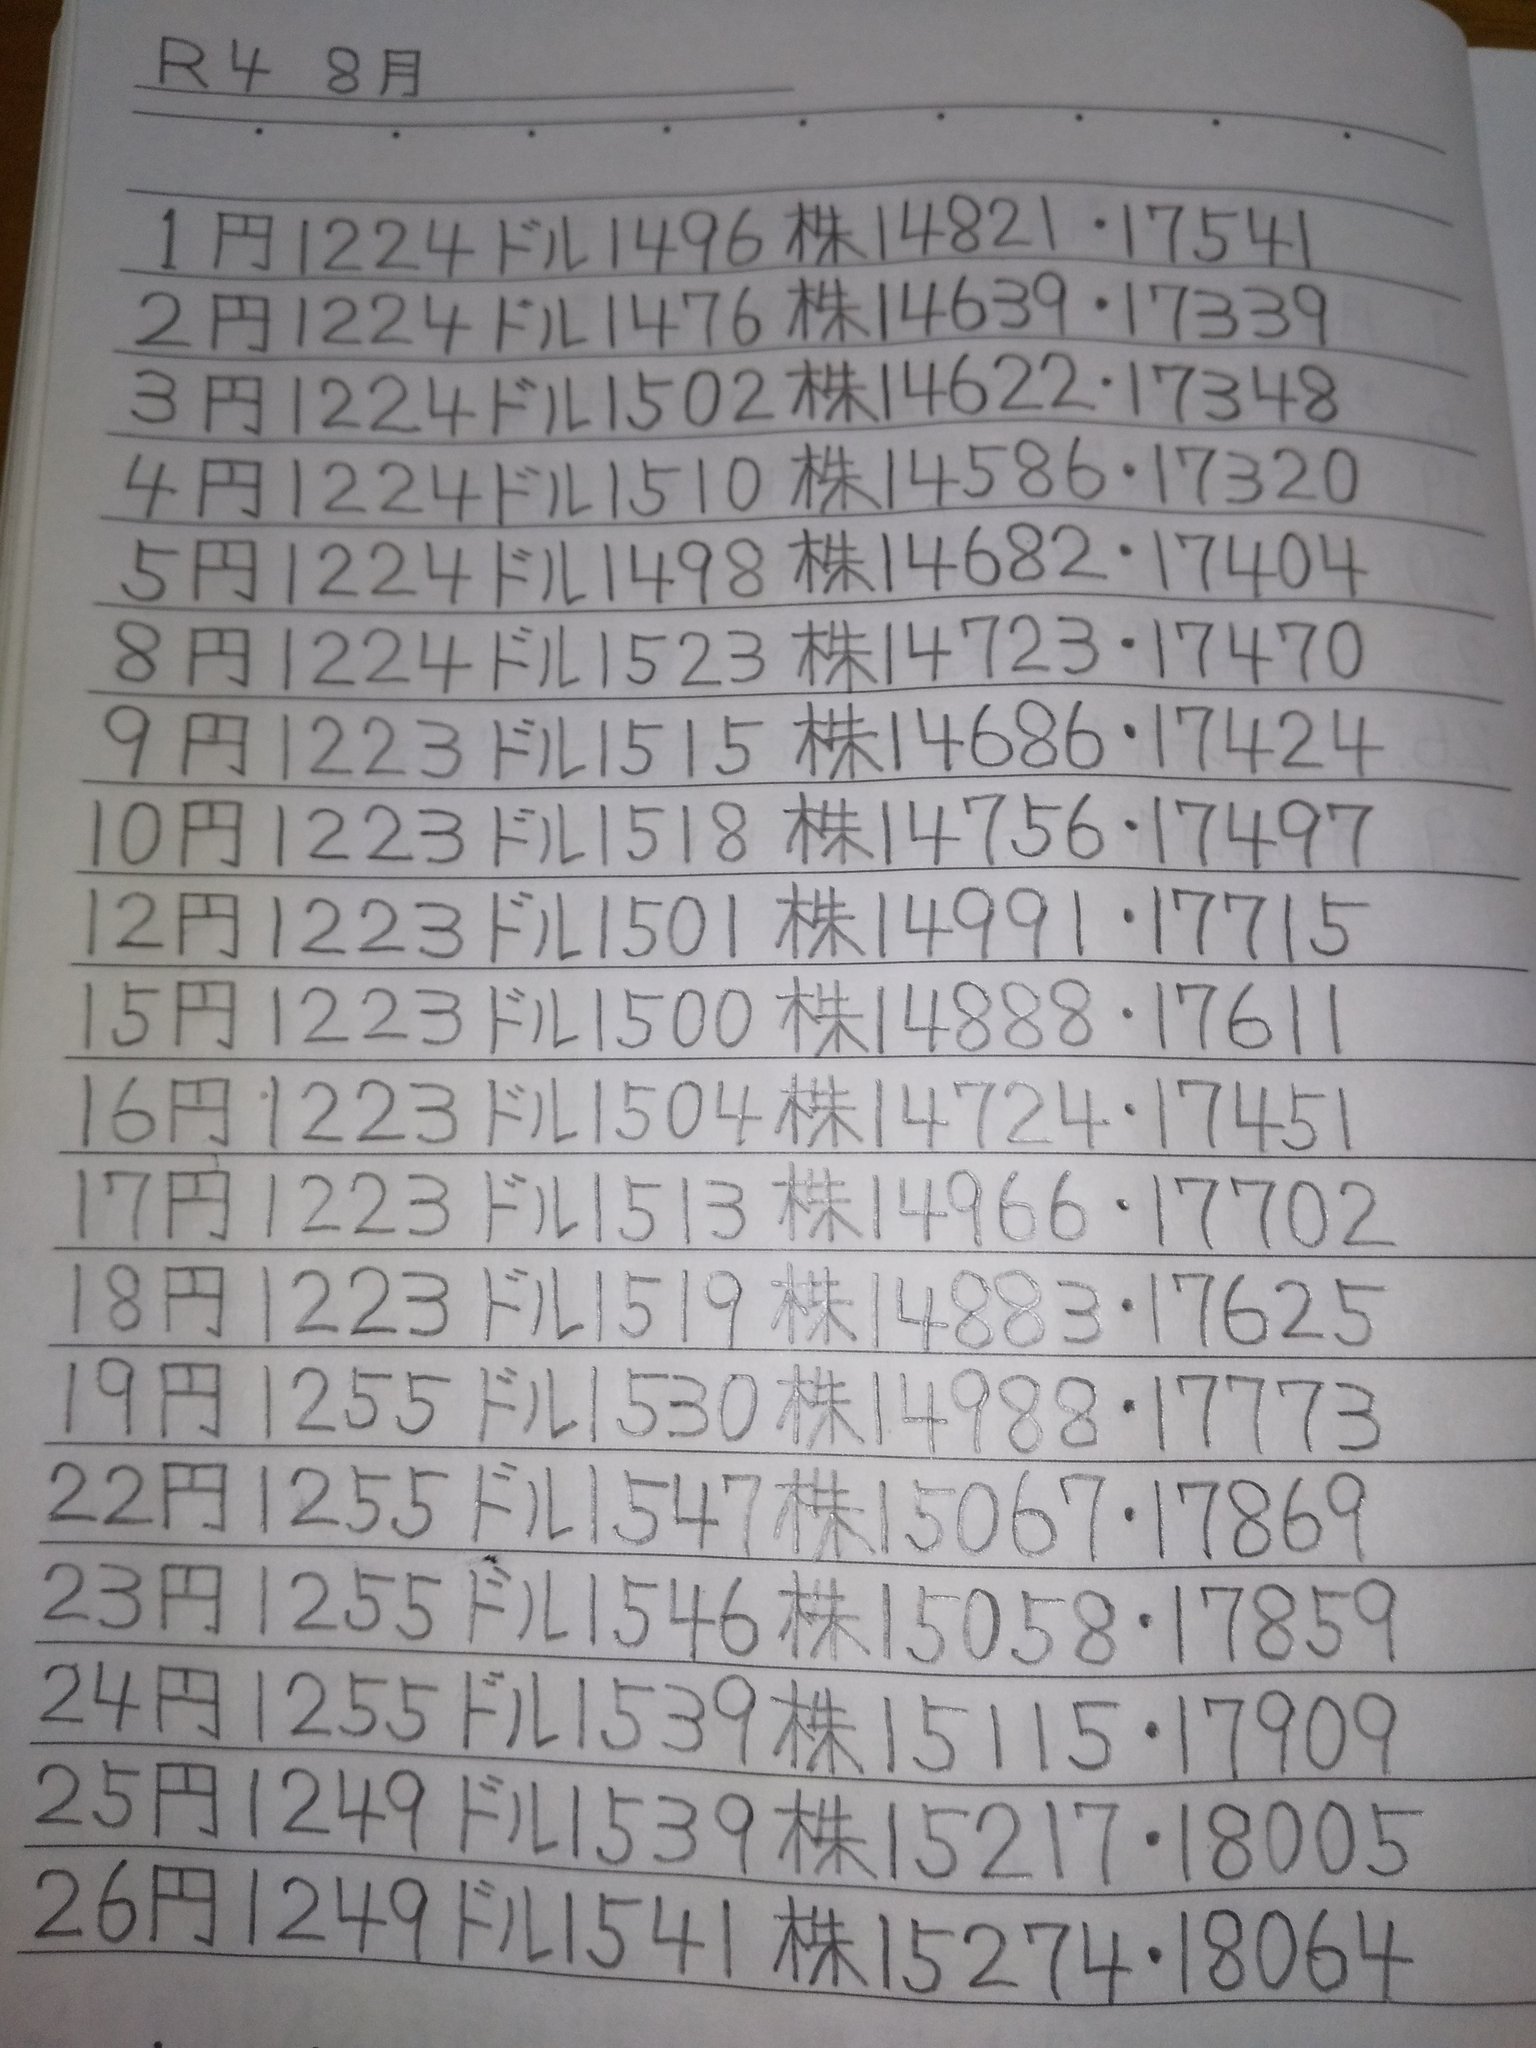 R4 8月
1円1224ドル1496株14821・17541
2円1224ドル1476株14639・17339
3円1224ドル1502株14622・17348
4円1224ドル1510株14586・17320
5円1224ドル1498株14682・17404
8円1224ドル1523株14723・17470
9円1223ドル1515株14686・17424
10円1223ドル1518株14756・17497
12円1223ドル1501株14991・17715
15円1223ドル1500株14888・17611
16円1223ドル1504株14724・17451
17円1223ドル1513株14966・17702
18円1223ドル1519株14883・17625
19円1255ドル1530株14988・17773
22円1255ドル1547株15067・17869
23円1255ドル1546株15058・17859
24円1255ドル1539株15115・17909
25円1249ドル1539株15217・18005
26円1249ドル1541株15274・18064